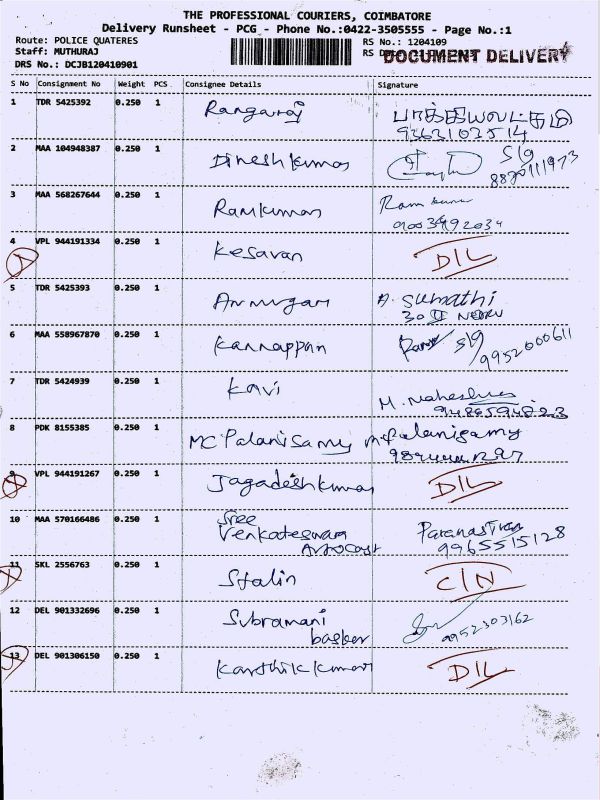 THE PROFESSIONAL COURIERS, COIMBATORE
Delivery Runsheet - PCG - Phone No.:0422-3505555 - Page No.:1
Route: POLICE QUATERES RS No.: 1204109
Staff: MUTHURAJ RS DOCUMENT DELIVERY
DRS No.: DCJB120410901
S No Consignment No Weight PCS. Consignee Details Signature
1 TDR 5425392 0.250 1 Rangaraj
9363103514
2 MAA 104948387 0.250 1 Dineshkumar S/g
3 MAA 568267644 0.250 1 Ramkumar Ram
4 VPL 944191334 0.250 1 Kesavan D/L
5 TDR 5425393 0.250 1 Arumugam A. Sumathi
30 II
6 MAA 558967870 0.250 1 Kannappan S/g
9952000611
7 TDR 5424939 0.250 1 Kavi M. Maheshwa
8 PDK 8155385 0.250 1 MC Palanisamy Palanisamy
9 VPL 944191267 0.250 1 Jagadeshkumar D/L
10 MAA 570166486 0.250 1 Sree
Venkateswara
9965515128
11 SKL 2556763 0.250 1 Stalin C/N
12 DEL 901332696 0.250 1 Subramani
basker 9952303162
13 DEL 901306150 0.250 1 Karthikkumar D/L